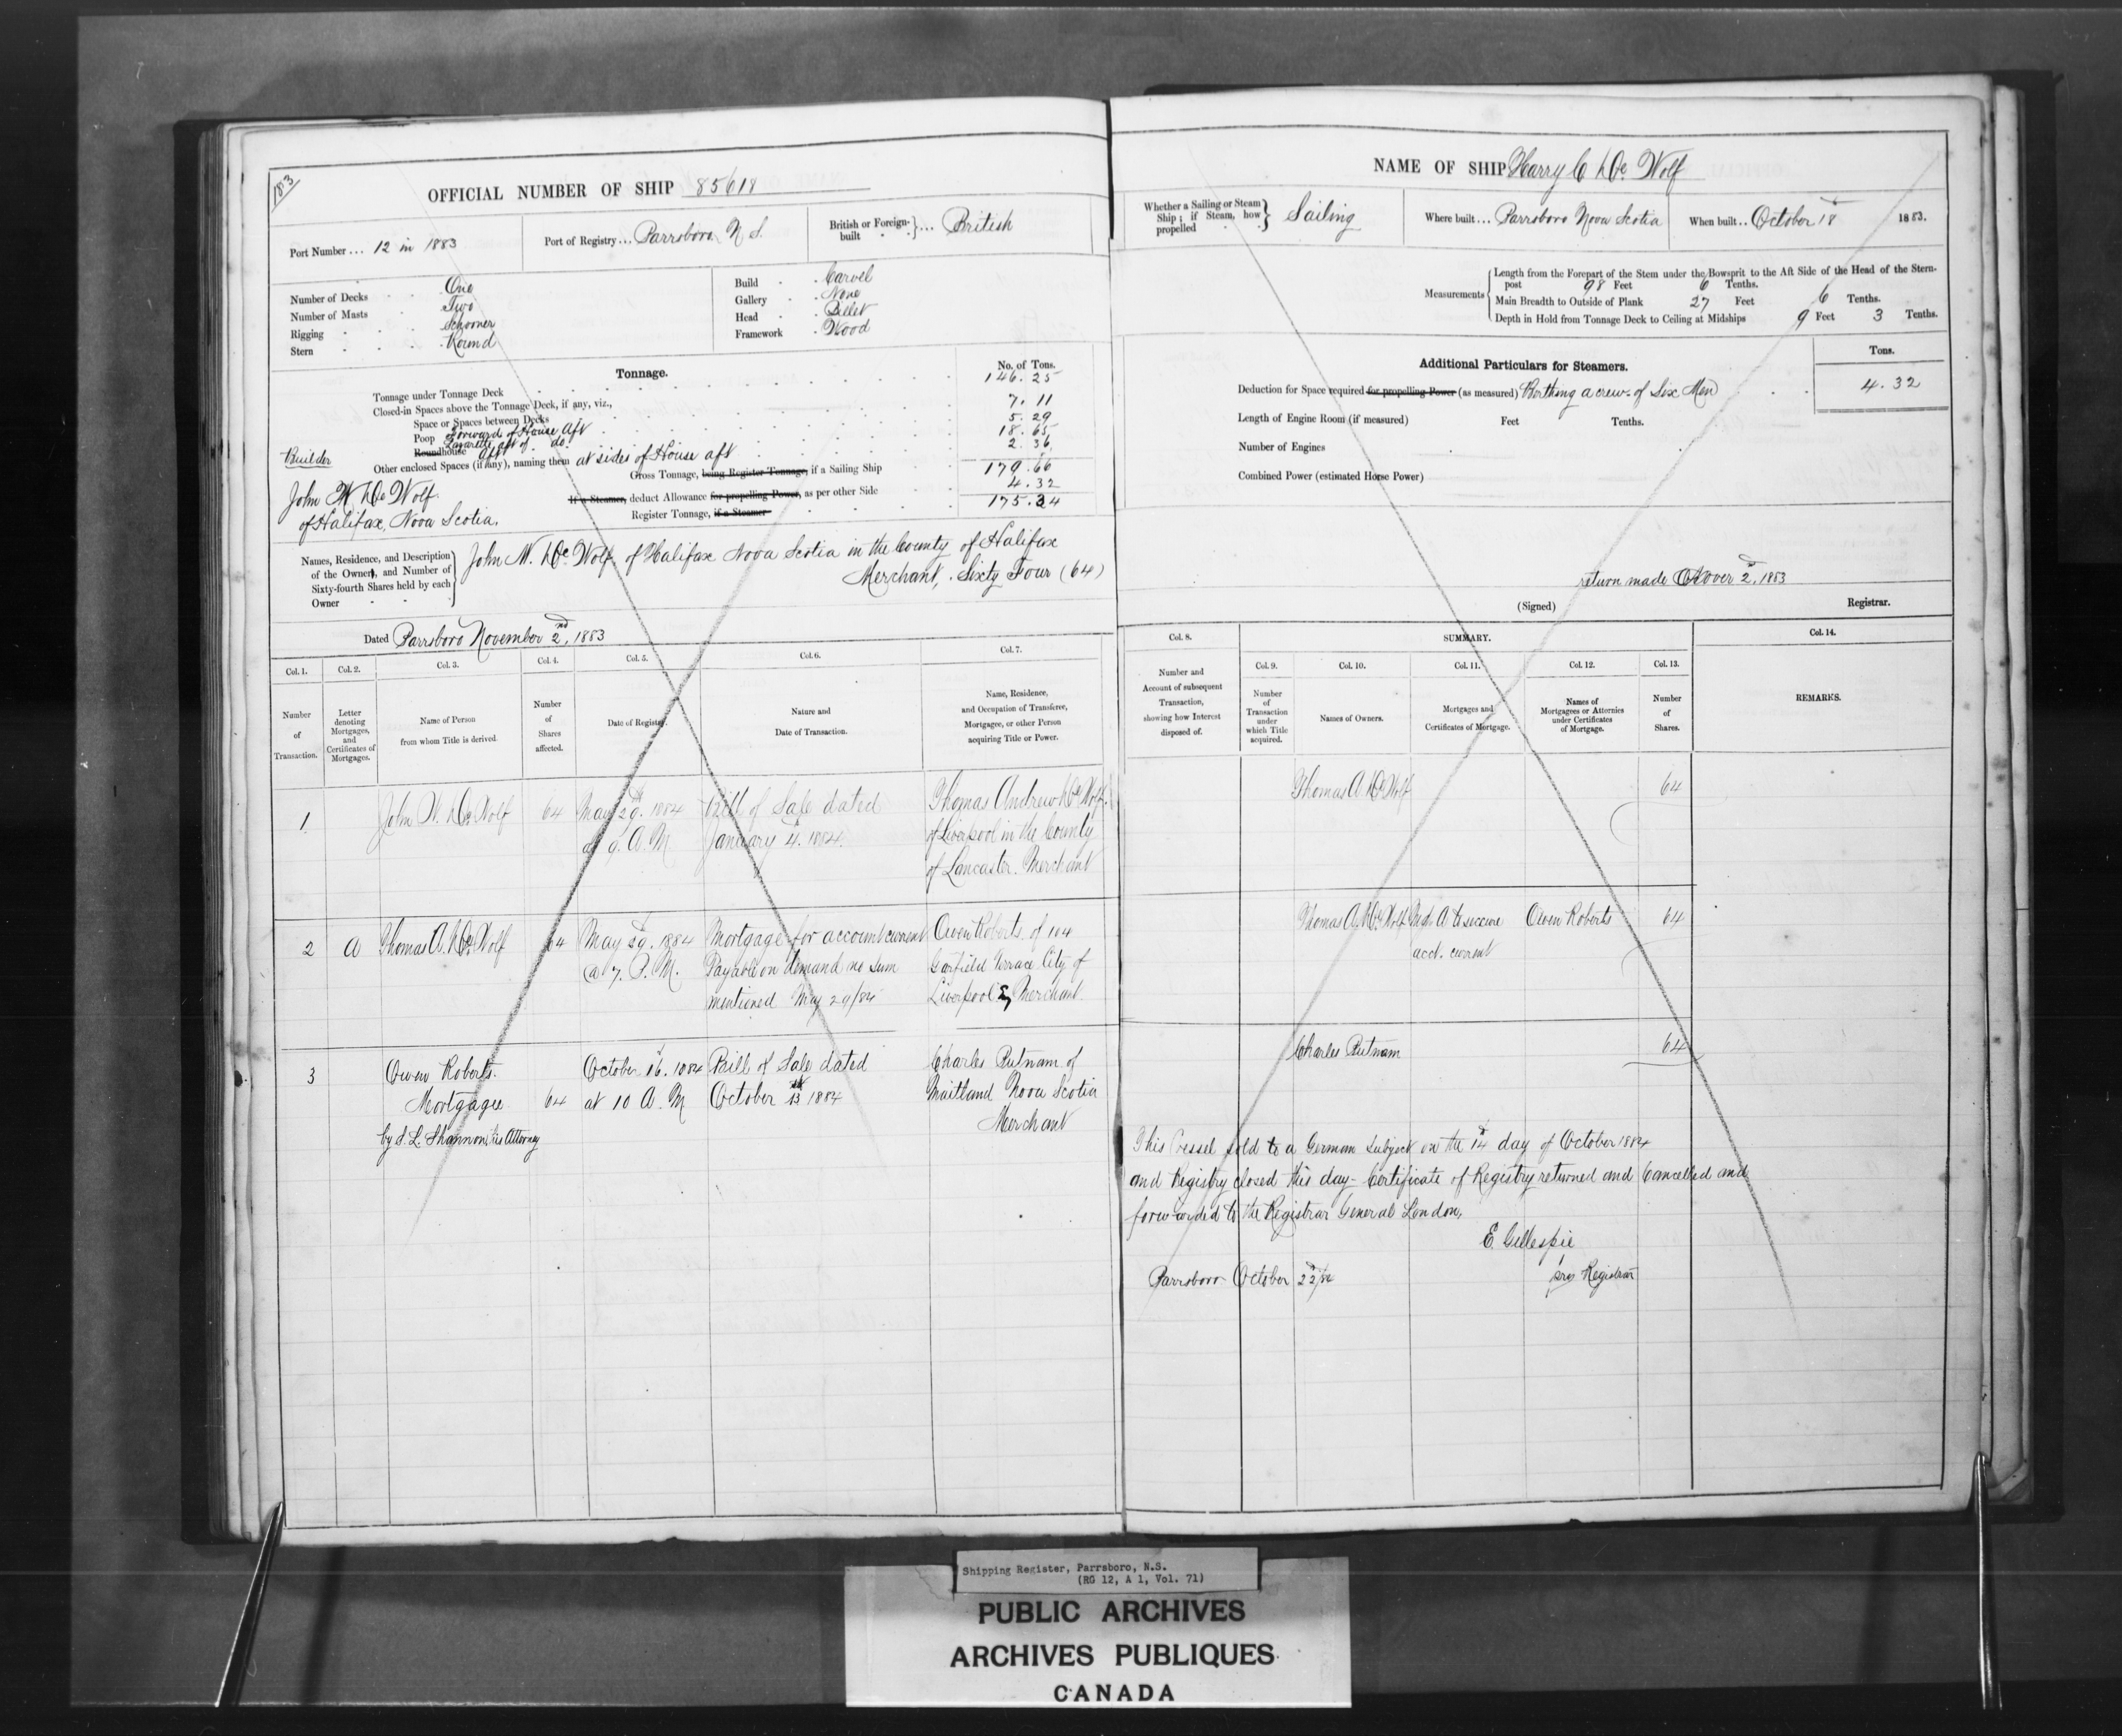 183
OFFICIAL NUMBER OF SHIP 85618
Port Number ... 12 in 1883
Port of Registry ... Parrsboro N S.
British or Foreign-built ... British
Number of Decks One
Number of Masts Two
Rigging Schooner
Stern Round
Build Carvel
Gallery None
Head Billet
Framework Wood
Tonnage.
No. of Tons.
Tonnage under Tonnage Deck 146.25
Closed-in Spaces above the Tonnage Deck, if any, viz.,
Space or Spaces between Decks 7.11
Poop Forward of House aft 5.29
Roundhouse Lazarette aft of do. 18.65
Other enclosed Spaces (if any), naming them at sides of House aft 2.36
Gross Tonnage, being Register Tonnage, if a Sailing Ship 179.66
If a Steamer, deduct Allowance for propelling Power, as per other Side 4.32
Register Tonnage, if a Steamer 175.34
Builder
John W. DeWolf.
of Halifax, Nova Scotia.
Names, Residence, and Description
of the Owners, and Number of
Sixty-fourth Shares held by each
Owner
John W. DeWolf of Halifax Nova Scotia in the County of Halifax
Merchant, Sixty Four (64)
Dated Parrsboro November 2nd, 1883
Col. 1. Col. 2. Col. 3. Col. 4. Col. 5. Col. 6. Col. 7.
Number of Transaction.
Letter denoting Mortgages, and Certificates of Mortgages.
Name of Person from whom Title is derived.
Number of Shares affected.
Date of Registry.
Nature and Date of Transaction.
Name, Residence, and Occupation of Transferee, Mortgagee, or other Person acquiring Title or Power.
1 John W. DeWolf 64 May 29. 1884 Bill of Sale dated Thomas Andrew DeWolf.
at 9. A. M January 4. 1884. of Liverpool in the County
of Lancaster. Merchant
2 A Thomas A. DeWolf 64 May 29. 1884 Mortgage for account current Owen Roberts. of 104
@ 7. P. M. Payable on demand no sum Garfield Terrace City of
mentioned May 29/84 Liverpool E, Merchant.
3 Owen Roberts. October 16. 1884 Bill of Sale dated Charles Putnam of
Mortgagee 64 at 10 A. M October 13 1884 Maitland Nova Scotia
by S. L. Shannon, his Attorney Merchant
NAME OF SHIP Harry C DeWolf
Whether a Sailing or Steam Ship; if Steam, how propelled Sailing
Where built ... Parrsboro Nova Scotia
When built .. October 18 1883.
Measurements
Length from the Forepart of the Stem under the Bowsprit to the Aft Side of the Head of the Stern-
post 98 Feet 6 Tenths.
Main Breadth to Outside of Plank 27 Feet 6 Tenths.
Depth in Hold from Tonnage Deck to Ceiling at Midships 9 Feet 3 Tenths.
Additional Particulars for Steamers.
Tons.
Deduction for Space required for propelling Power (as measured) Berthing a crew of Six Men 4.32
Length of Engine Room (if measured) Feet Tenths.
Number of Engines
Combined Power (estimated Horse Power)
return made 2, 1883
(Signed) Registrar.
Col. 8. SUMMARY. Col. 14.
Col. 9. Col. 10. Col. 11. Col. 12. Col. 13.
Number and Account of subsequent Transaction, showing how Interest disposed of.
Number of Transaction under which Title acquired.
Names of Owners.
Mortgages and Certificates of Mortgage.
Names of Mortgagees or Attornies under Certificates of Mortgage.
Number of Shares.
REMARKS.
Thomas A. DeWolf 64
Thomas A. DeWolf A to secure Owen Roberts 64
acct. current
Charles Putnam 64
This Vessel sold to a German Subject on the 14 day of October 1884
and Registry closed this day - Certificate of Registry returned and Cancelled and
forwarded to the Registrar General London,
E. Gillespie
Registrar
Parrsboro October 22/84
Shipping Register, Parrsboro, N.S.
(RG 12, A 1, Vol. 71)
PUBLIC ARCHIVES
ARCHIVES PUBLIQUES
CANADA